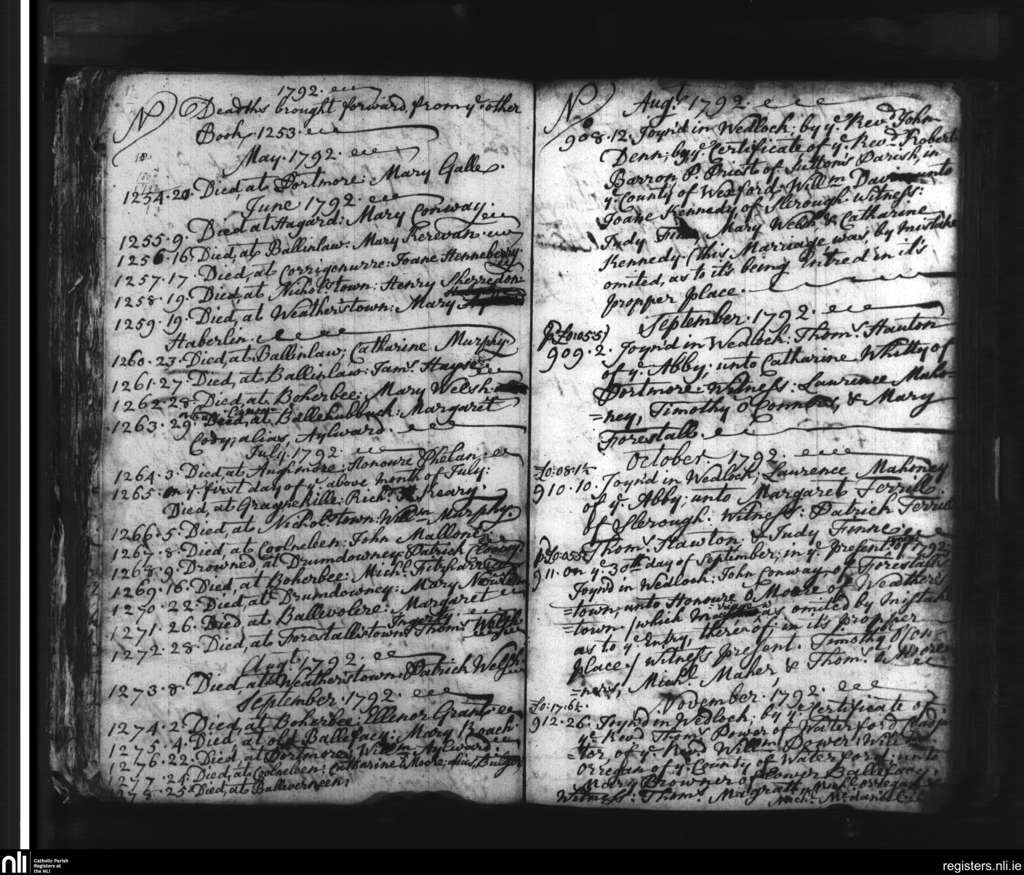 1792.
N Deaths brought forward from ye other
Book 1253.
May. 1792.
1254.20. Died, at Portmore: Mary Galle.
June 1792.
1255.9. Died at Hagard: Mary Conway.
1256.16. Died, at Ballinlaw: Mary Kerevan.
1257.17. Died, at Corrigonurre: Joane Henneberry
1258.19. Died, at Nicholstown: Henry Sherredon
1259.19. Died, at Weatherstown: Mary
Haberlin.
1260.23. Died, at Ballinlaw; Catharine Murphy
1261.27. Died, at Ballinlaw: Jams. Hayse
1262.28. Died, at Boherbee: Mary Welsh
1263.29. Died, at Margaret
Cody, alias, Aylward.
July. 1792.
1264.3. Died, at Anginore: Honoure Phelan;
1265. on ye first day of ye above month of July:
Died, at Graynekille: Richd. Keary
1266.5. Died, at Nicholstown: Willm Murphy
1267.8. Died, at Coolneleen: John Mallone
1268.9. Drowned at Drumdowney: Patrick
1269.16. Died, at Boherbee: Michl.
1270.22. Died, at Drumdowney: Mary
1271.26. Died, at Ballevolere: Margaret
1272.28. Died, at Forestallstown: Thoms Welsh
Augt. 1792.
1273.8. Died, at Weatherstown: Patrick Welsh
September. 1792.
1274.2. Died, at Boherbee: Ellenor Grant
1275.4. Died, at old Ballefacy: Mary Roach
1276.22. Died, at Portmore; Willm Aylward.
1277.24. Died, at Coolneleen: Catharine Moore, alias,
25. Died, at
N Augt. 1792.
908.12. Joyn'd in Wedlock; by ye Revd John
Denn; by ye Certificate of ye Revd Robert
Barron P. Priest of Suttons Parish, in
ye County of Wexford; Willm unto
Joane Kennedy of Slerough. Witness:
Judy Mary Welsh & Catharine
Kennedy (this Marriage was, by Mistake
omited, as to it's being Entred in it's
propper place.
September. 1792.
909.2. Joyn'd in Wedlock; Thoms. Hauton
of ye Abby; unto Catharine Whitty of
Portmore. Witness: Laurence Maho=
=ney, Timothy O Connors, & Mary
Forestall.
October. 1792.
910.10. Joyn'd in Wedlock; Laurence Mahoney
of ye Abby: unto Margaret
of Slerough. Witness: Patrick
Thoms. Hawton & Judy
911. on ye 30th day of September; in ye present year of 1792
Joyn'd in Wedlock: John Conway of Forestalls
=town; unto Honoure O Moore of Weathers
=town / which was omited by Mistake
as to ye Entry, thereof in its propper
place / witness present. Timothy O Con
=ners, Michl. Maher & Thoms. O Moore
November. 1792.
912.26. Joyn'd in Wedlock; by ye Certificate of
ye Revd Thoms Power of Waterford
of ye Revd Willm Power; Willm
Orregan of ye County of Waterford; unto
Mary Browner of lower Ballefacy.
Witness: Thoms. Magrath, Michl. Orregan
Michl. McDaniel
nli
Catholic Parish
Registers at
the NLI
registers.nli.ie